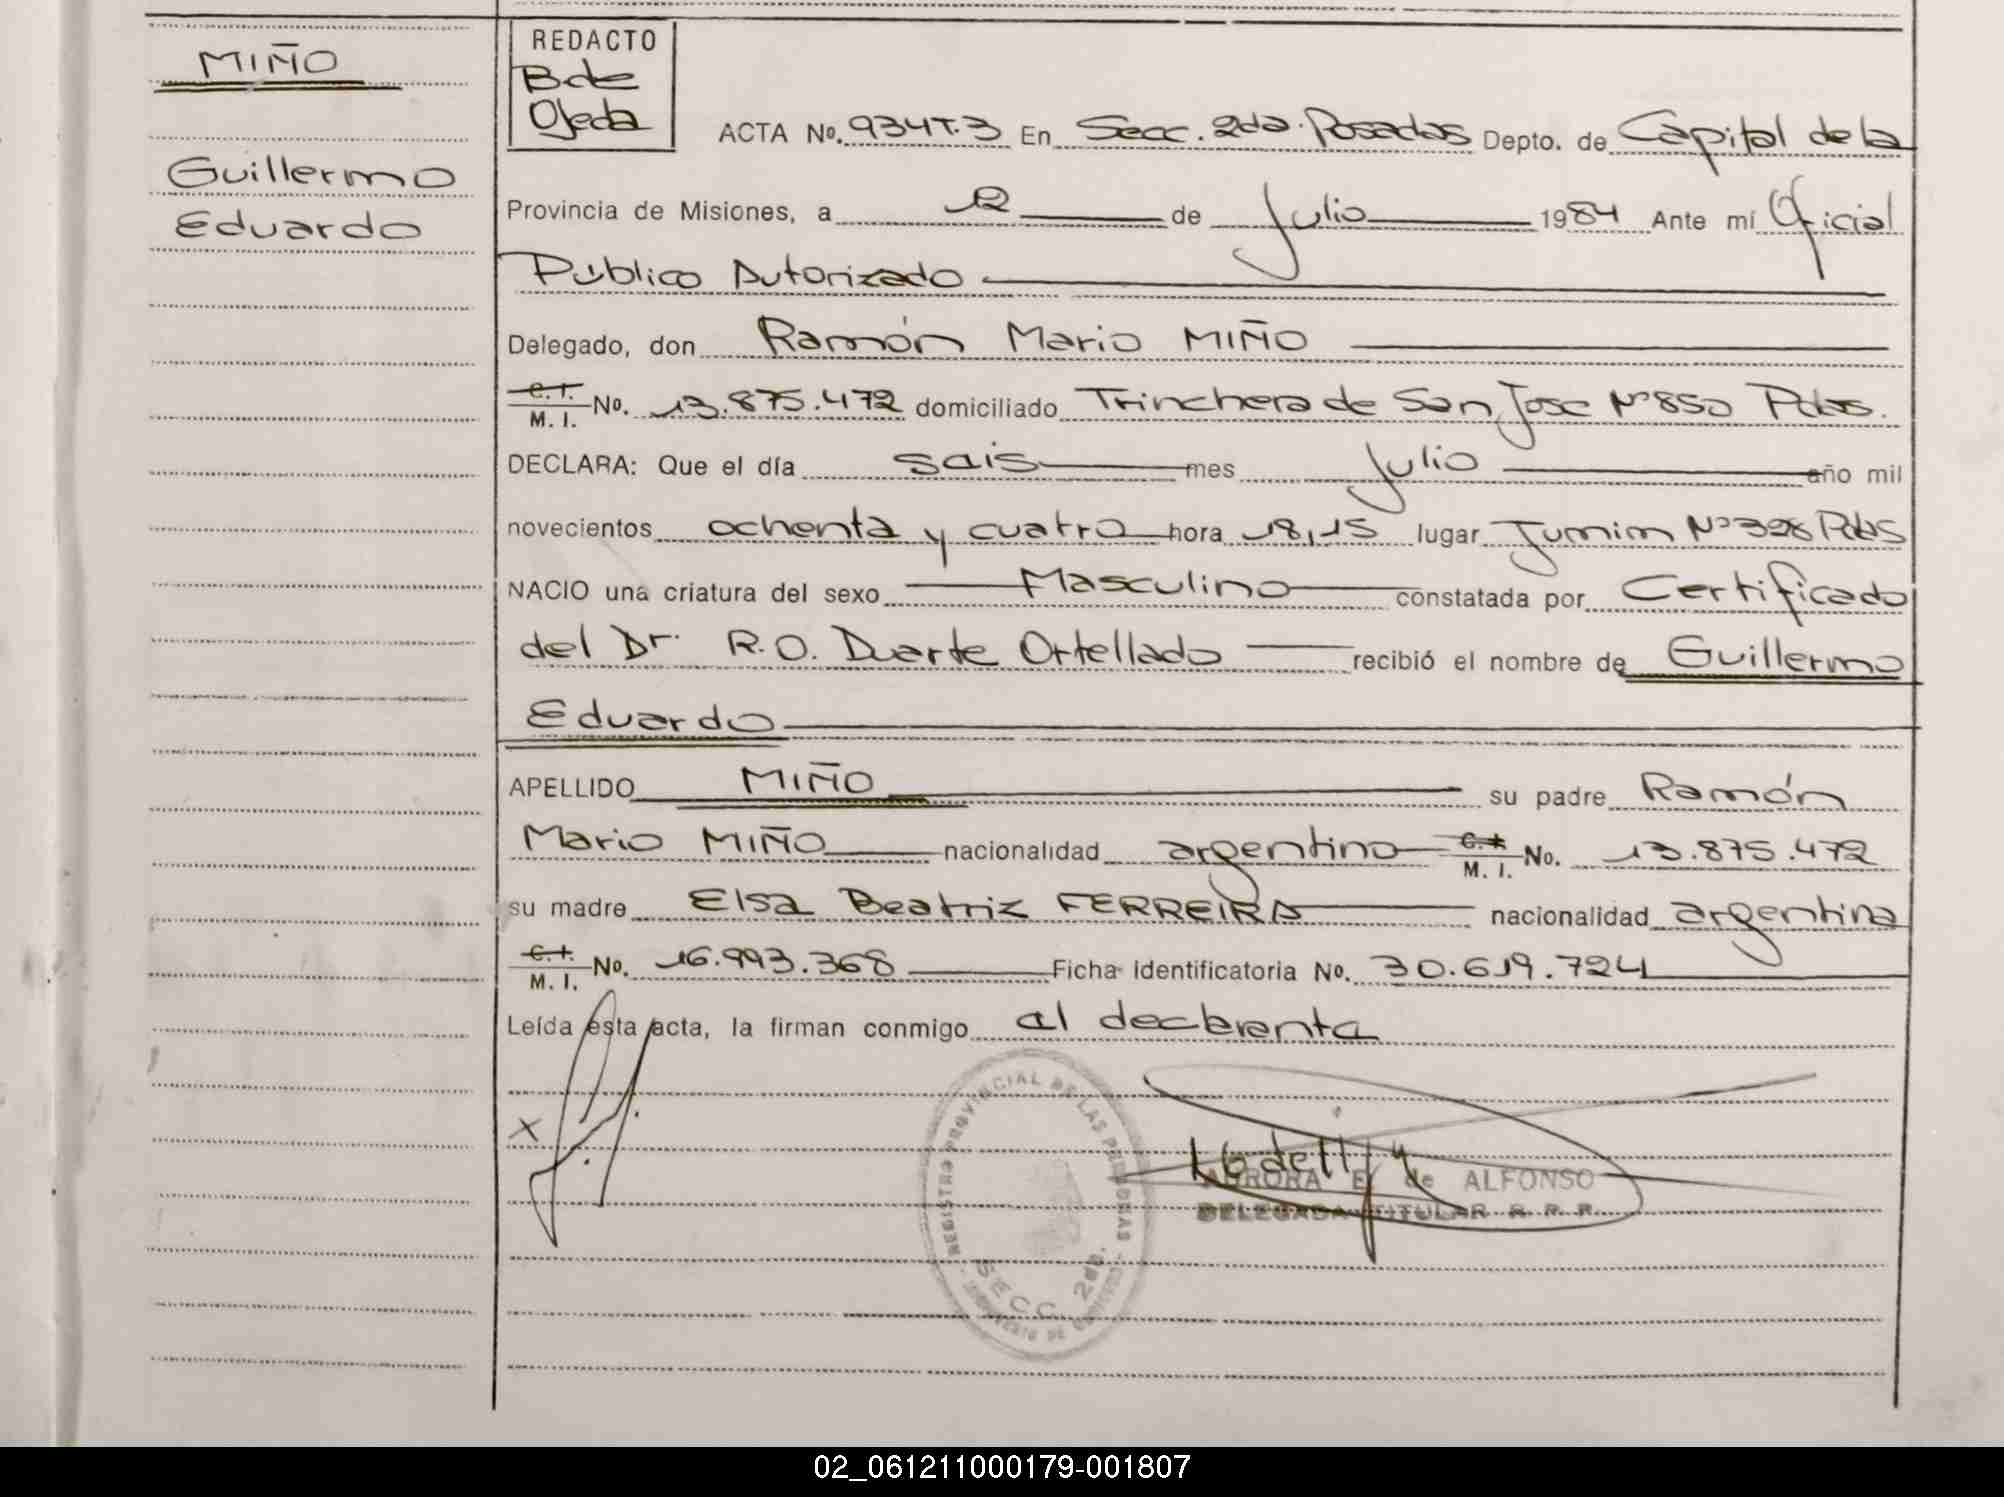 MIÑO
Guillermo
Eduardo
REDACTO
Bde
Ojeda
ACTA No. 934T.3 En Secc. 2da. Posadas Depto. de Capital de la
Provincia de Misiones, a 12 de Julio 1984 Ante mí Oficial
Público Autorizado
Delegado, don Ramón Mario MIÑO
C. I.
M. I. No. 13.875.472 domiciliado Trinchera de San Jose Nº 850 Pdas.
DECLARA: Que el día sais mes Julio año mil
novecientos ochenta y cuatro hora 18,15 lugar Junin Nº 328 Pdas
NACIO una criatura del sexo Masculino constatada por Certificado
del Dr. R.O. Duarte Ortellado recibió el nombre de Guillermo
Eduardo
APELLIDO MIÑO su padre Ramón
Mario MIÑO nacionalidad argentino C. I.
M. I. No. 13.875.472
su madre Elsa Beatriz FERREIRA nacionalidad argentina
C. I.
M. I. No. 16.993.368 Ficha Identificatoria No. 30.619.724
Leída esta acta, la firman conmigo al declaranta
x
REGISTRO PROVINCIAL DE LAS PERSONAS
SECC. 2da.
AURORA E. de ALFONSO
DELEGADA TITULAR R. P. P.
02_061211000179-001807